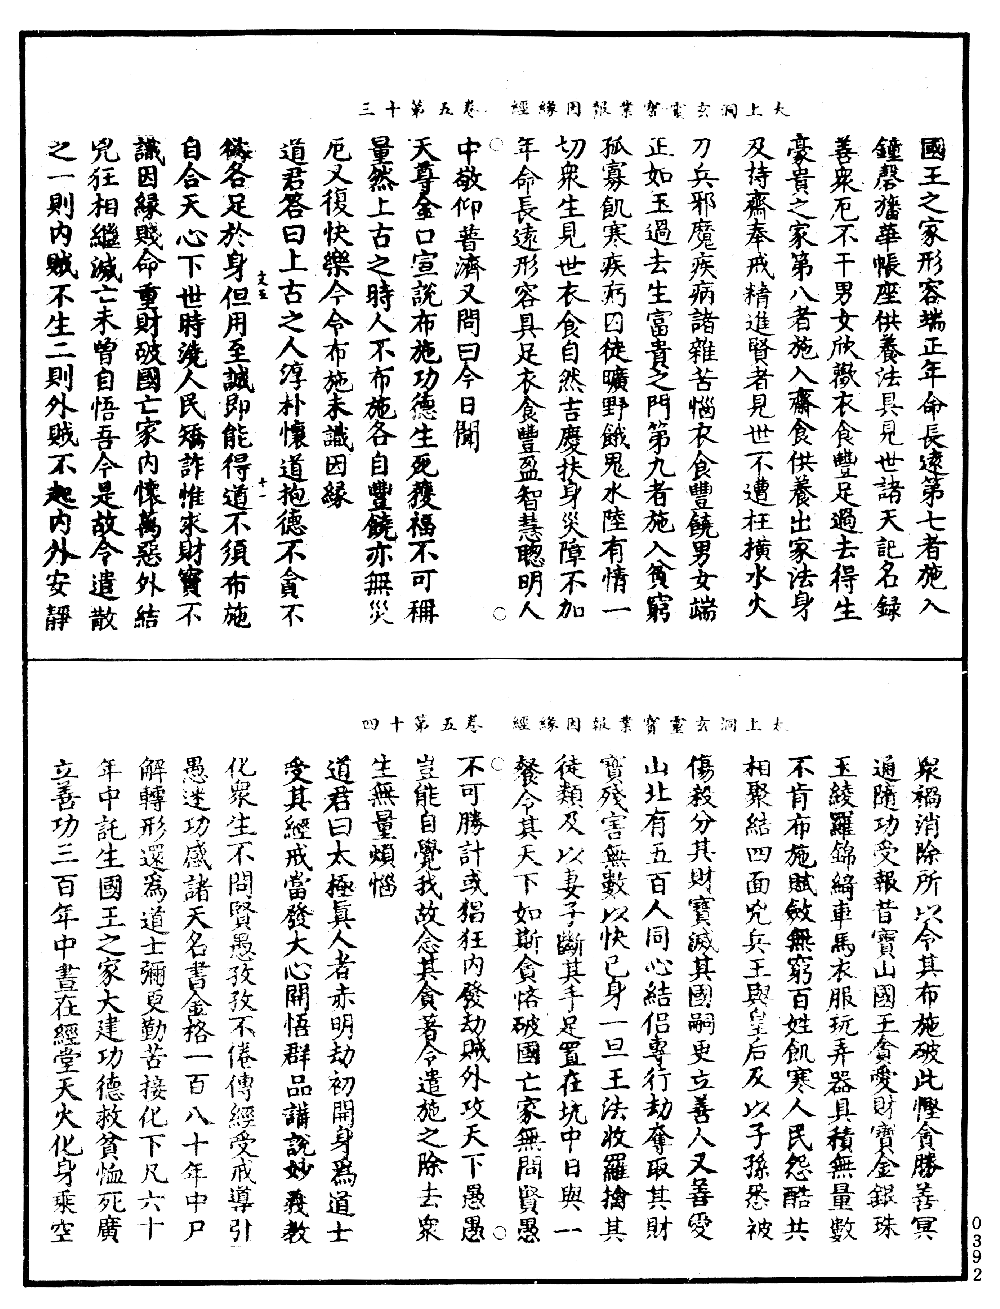 太上洞玄靈寳業報因緣經　卷五第十三
國王之家形容端正年命長逺第七者施入
鍾磬旛華帳座供養法具見世諸天記名録
善衆厄不干男女欣歡衣食豐足過去得生
豪貴之家第八者施入齋食供養出家法身
及持齋奉戒精進賢者見世不遭枉横水火
刀兵邪魔疾病諸雜苦惱衣食豐饒男女端
正如玉過去生富貴之門第九者施入貧窮
孤寡飢寒疾病囚徒曠野餓鬼水陸有情一
切衆生見世衣食自然吉慶扶身災障不加
年命長逺形容具足衣食豐盈智慧聰明人
中敬仰普濟又問曰今日聞
天尊金口宣説布施功德生死獲福不可稱
量然上古之時人不布施各自豐饒亦無災
厄又復快樂今令布施未識因緣
道君答曰上古之人淳朴懷道抱德不貪不
欲各足於身但用至誠即能得道不須布施
自合天心下世時澆人民矯詐惟求財寳不
識因緣賤命重財破國亡家内懷萬惡外結
兇狂相繼滅亡未曾自悟吾今是故令遣散
之一則内賊不生二則外賊不起内外安静
太上洞玄靈寳業報因緣經　卷五第十四
衆禍消除所以令其布施破此慳貪勝善冥
通隨功受報昔寳山國王貪愛財寳金銀珠
玉綾羅錦綺車馬衣服玩弄器具積無量數
不肯布施賦斂無窮百姓飢寒人民怨酷共
相聚結四面兇兵王與皇后及以子孫悉被
傷殺分其財寳滅其國嗣更立善人又善愛
山北有五百人同心結侣專行劫奪取其財
寳殘害無數以快己身一旦王法收羅擒其
徒類及以妻子斷其手足置在坑中日與一
餐令其天下如斯貪悋破國亡家無問賢愚
不可勝計或猖狂内發劫賊外攻天下愚愚
豈能自覺我故念其貪著令遣施之除去衆
生無量煩惱
道君曰太極真人者赤明劫初開身爲道士
受其經戒當發大心開悟群品講説妙義教
化衆生不問賢愚孜孜不倦傳經受戒導引
愚迷功感諸天名書金格一百八十年中尸
解轉形還爲道士彌更勤苦接化下凡六十
年中託生國王之家大建功德救貧恤死廣
立善功三百年中晝在經堂天火化身乘空
0392